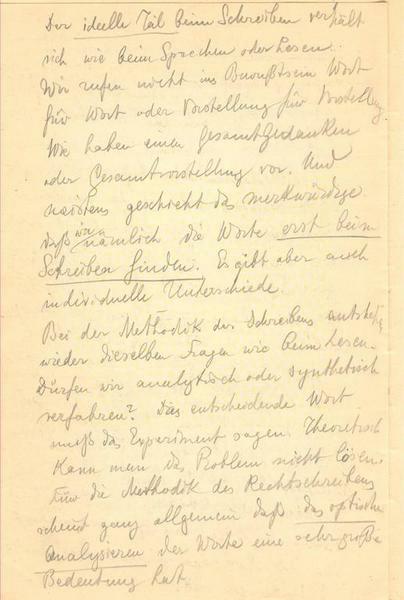 Der ideelle Teil beim Schreiben verhält
sich wie beim Sprechen oder Lesen.
Wir rufen nicht ins Bewußtsein Wort
für Wort oder Vorstellung für Vorstellung.
Wir haben einen Gesamtgedanken
oder Gesamtvorstellung vor. Und
meistens geschieht das merkwürdige
daß wir nämlich die Worte erst beim
Schreiben finden. Es gibt aber auch
individuelle Unterschiede.
Bei der Methodik des Schreibens entstehen
wieder dieselben Fragen wie beim Lesen.
Dürfen wir analytisch oder synthetisch
verfahren? Das entscheidende Wort
muß das Experiment sagen. Theoretisch
kann man das Problem nicht lösen.
Für die Methodik des Rechtschreibens
scheint ganz allgemein daß das optische
Analysieren der Worte eine sehr große
Bedeutung hat.